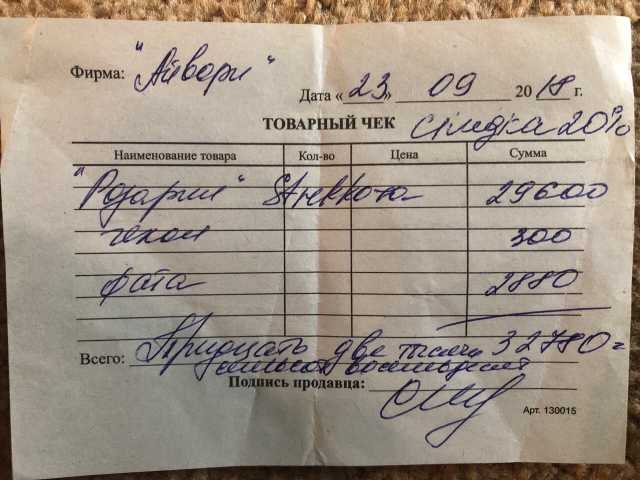 Фирма: "Айвори"
Дата «23» 09 2018 г.
ТОВАРНЫЙ ЧЕК скидка 20%
Наименование товара Кол-во Цена Сумма
"Розарии" Strekkoza 29600
чехол 300
фата 2880
Всего: Тридцать две тысячи 32780=
семьсот восемьдесят
Подпись продавца:
Арт. 130015